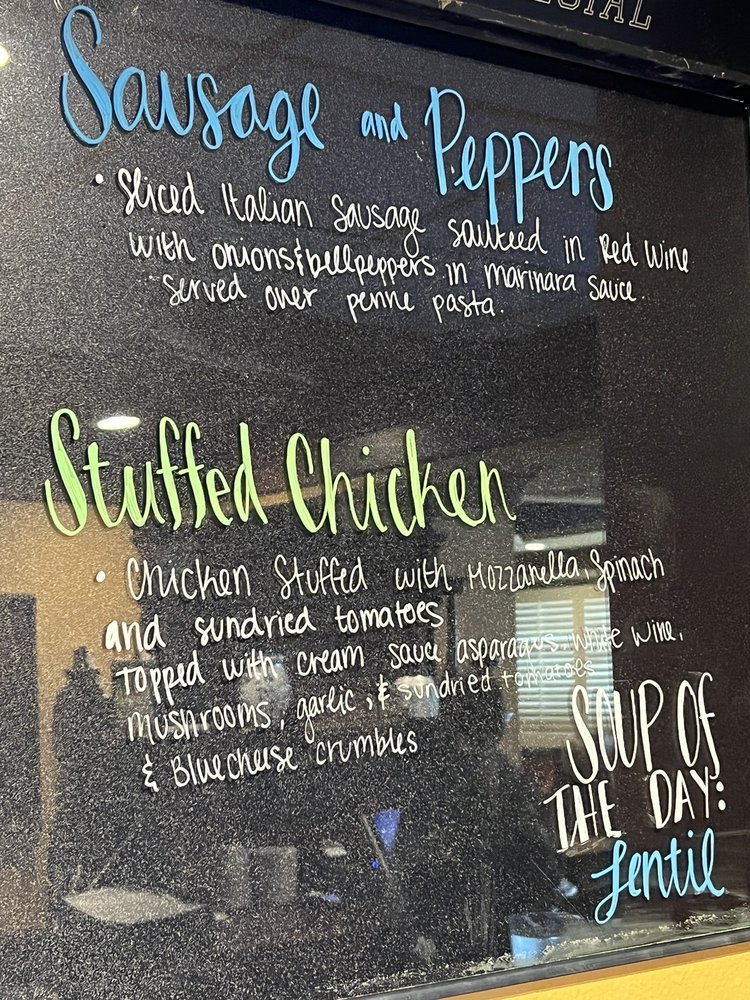 Sausage and Peppers
• Sliced Italian Sausage sauteed in Red Wine
with onions & bellpeppers in marinara sauce
served over penne pasta.
Stuffed Chicken
• Chicken Stuffed with Mozzarella, Spinach
and sundried tomatoes
Topped with cream sauce asparagus, white wine,
mushrooms, garlic, & sundried tomatoes
& Bluecheese crumbles
SOUP OF
THE DAY:
Lentil